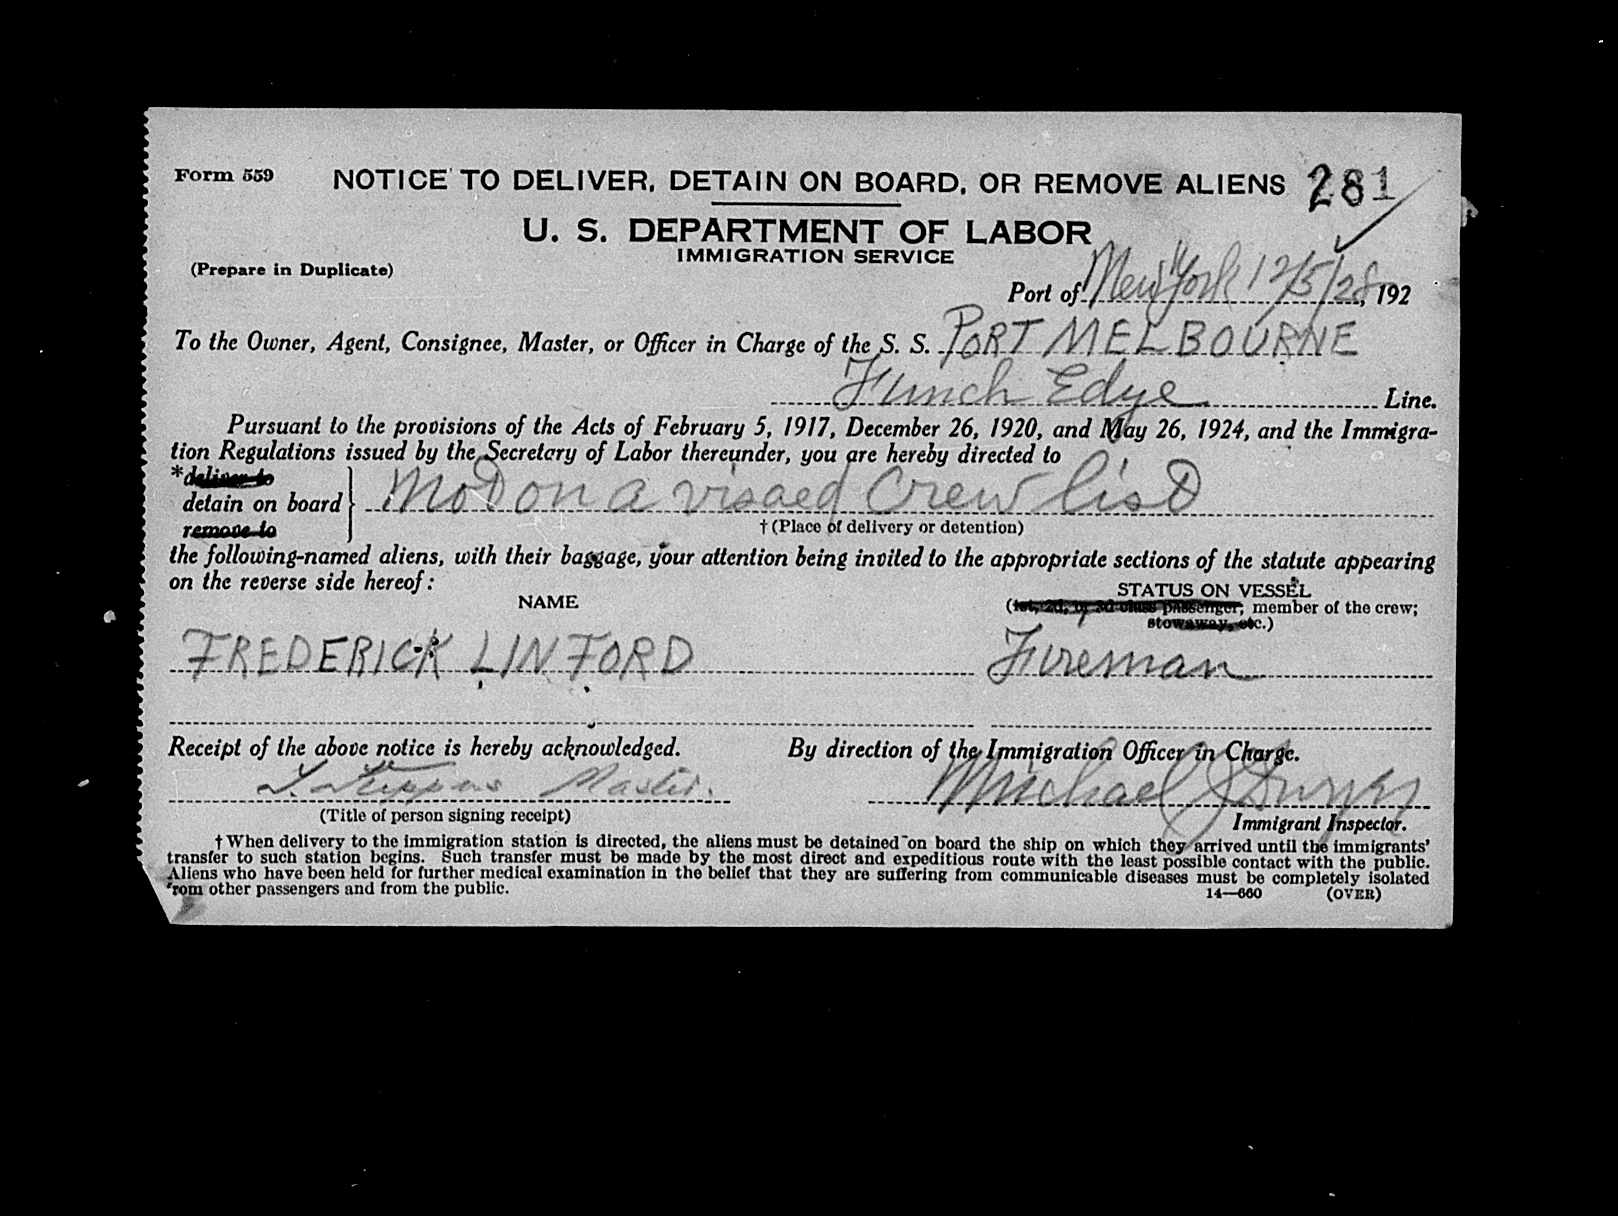 Form 559 NOTICE TO DELIVER, DETAIN ON BOARD, OR REMOVE ALIENS 281
U. S. DEPARTMENT OF LABOR
IMMIGRATION SERVICE
(Prepare in Duplicate)
Port of New York 12/5/28, 192
To the Owner, Agent, Consignee, Master, or Officer in Charge of the S. S. PORT MELBOURNE
Funch Edye Line.
Pursuant to the provisions of the Acts of February 5, 1917, December 26, 1920, and May 26, 1924, and the Immigra-
tion Regulations issued by the Secretary of Labor thereunder, you are hereby directed to
*deliver to
detain on board } Not on a visaed Crew list
remove to
† (Place of delivery or detention)
the following-named aliens, with their baggage, your attention being invited to the appropriate sections of the statute appearing
on the reverse side hereof:
NAME
STATUS ON VESSEL
(1st, 2d, or 3d class passenger; member of the crew;
stowaway, etc.)
FREDERICK LINFORD Fireman
Receipt of the above notice is hereby acknowledged. By direction of the Immigration Officer in Charge.
Master. Michael J
(Title of person signing receipt)
Immigrant Inspector.
† When delivery to the immigration station is directed, the aliens must be detained on board the ship on which they arrived until the immigrants'
transfer to such station begins. Such transfer must be made by the most direct and expeditious route with the least possible contact with the public.
Aliens who have been held for further medical examination in the belief that they are suffering from communicable diseases must be completely isolated
from other passengers and from the public.
14—660 (OVER)